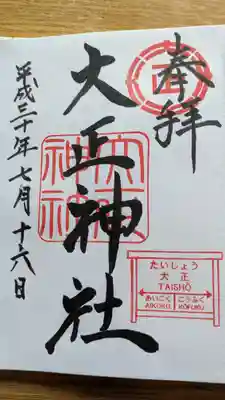 奉拝
大正神社
平成三十年七月十六日
大正神社
たいしょう
大正
TAISHŌ
あいこく こうふく
AIKOKU KŌFUKU